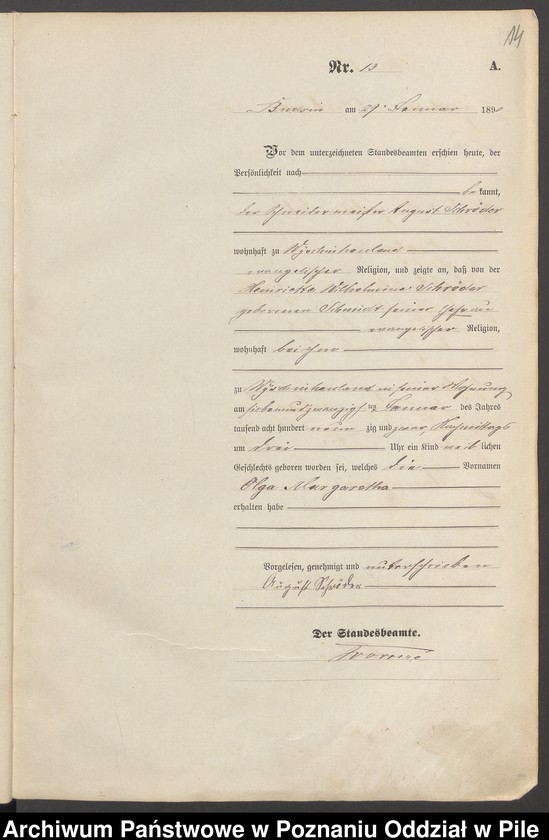 14
Nr. 13 A.
am 29. Januar 189
Vor dem unterzeichneten Standesbeamten erschien heute, der
Persönlichkeit nach
bekannt,
der Schneidermeister August Schröder
wohnhaft zu
evangelischer Religion, und zeigte an, daß von der
Henriette Wilhelmine Schröder
geborenen Schmidt seiner Ehefrau
evangelischer Religion,
wohnhaft bei ihm
zu in seiner Wohnung
am siebenundzwanzigsten Januar des Jahres
tausend acht hundert neun zig und zwar Nachmittags
um drei Uhr ein Kind weib lichen
Geschlechts geboren worden sei, welches die Vornamen
Olga Margaretha
erhalten habe
Vorgelesen, genehmigt und unterschrieben
August Schröder
Der Standesbeamte.
Archiwum Państwowe w Poznaniu Oddział w Pile